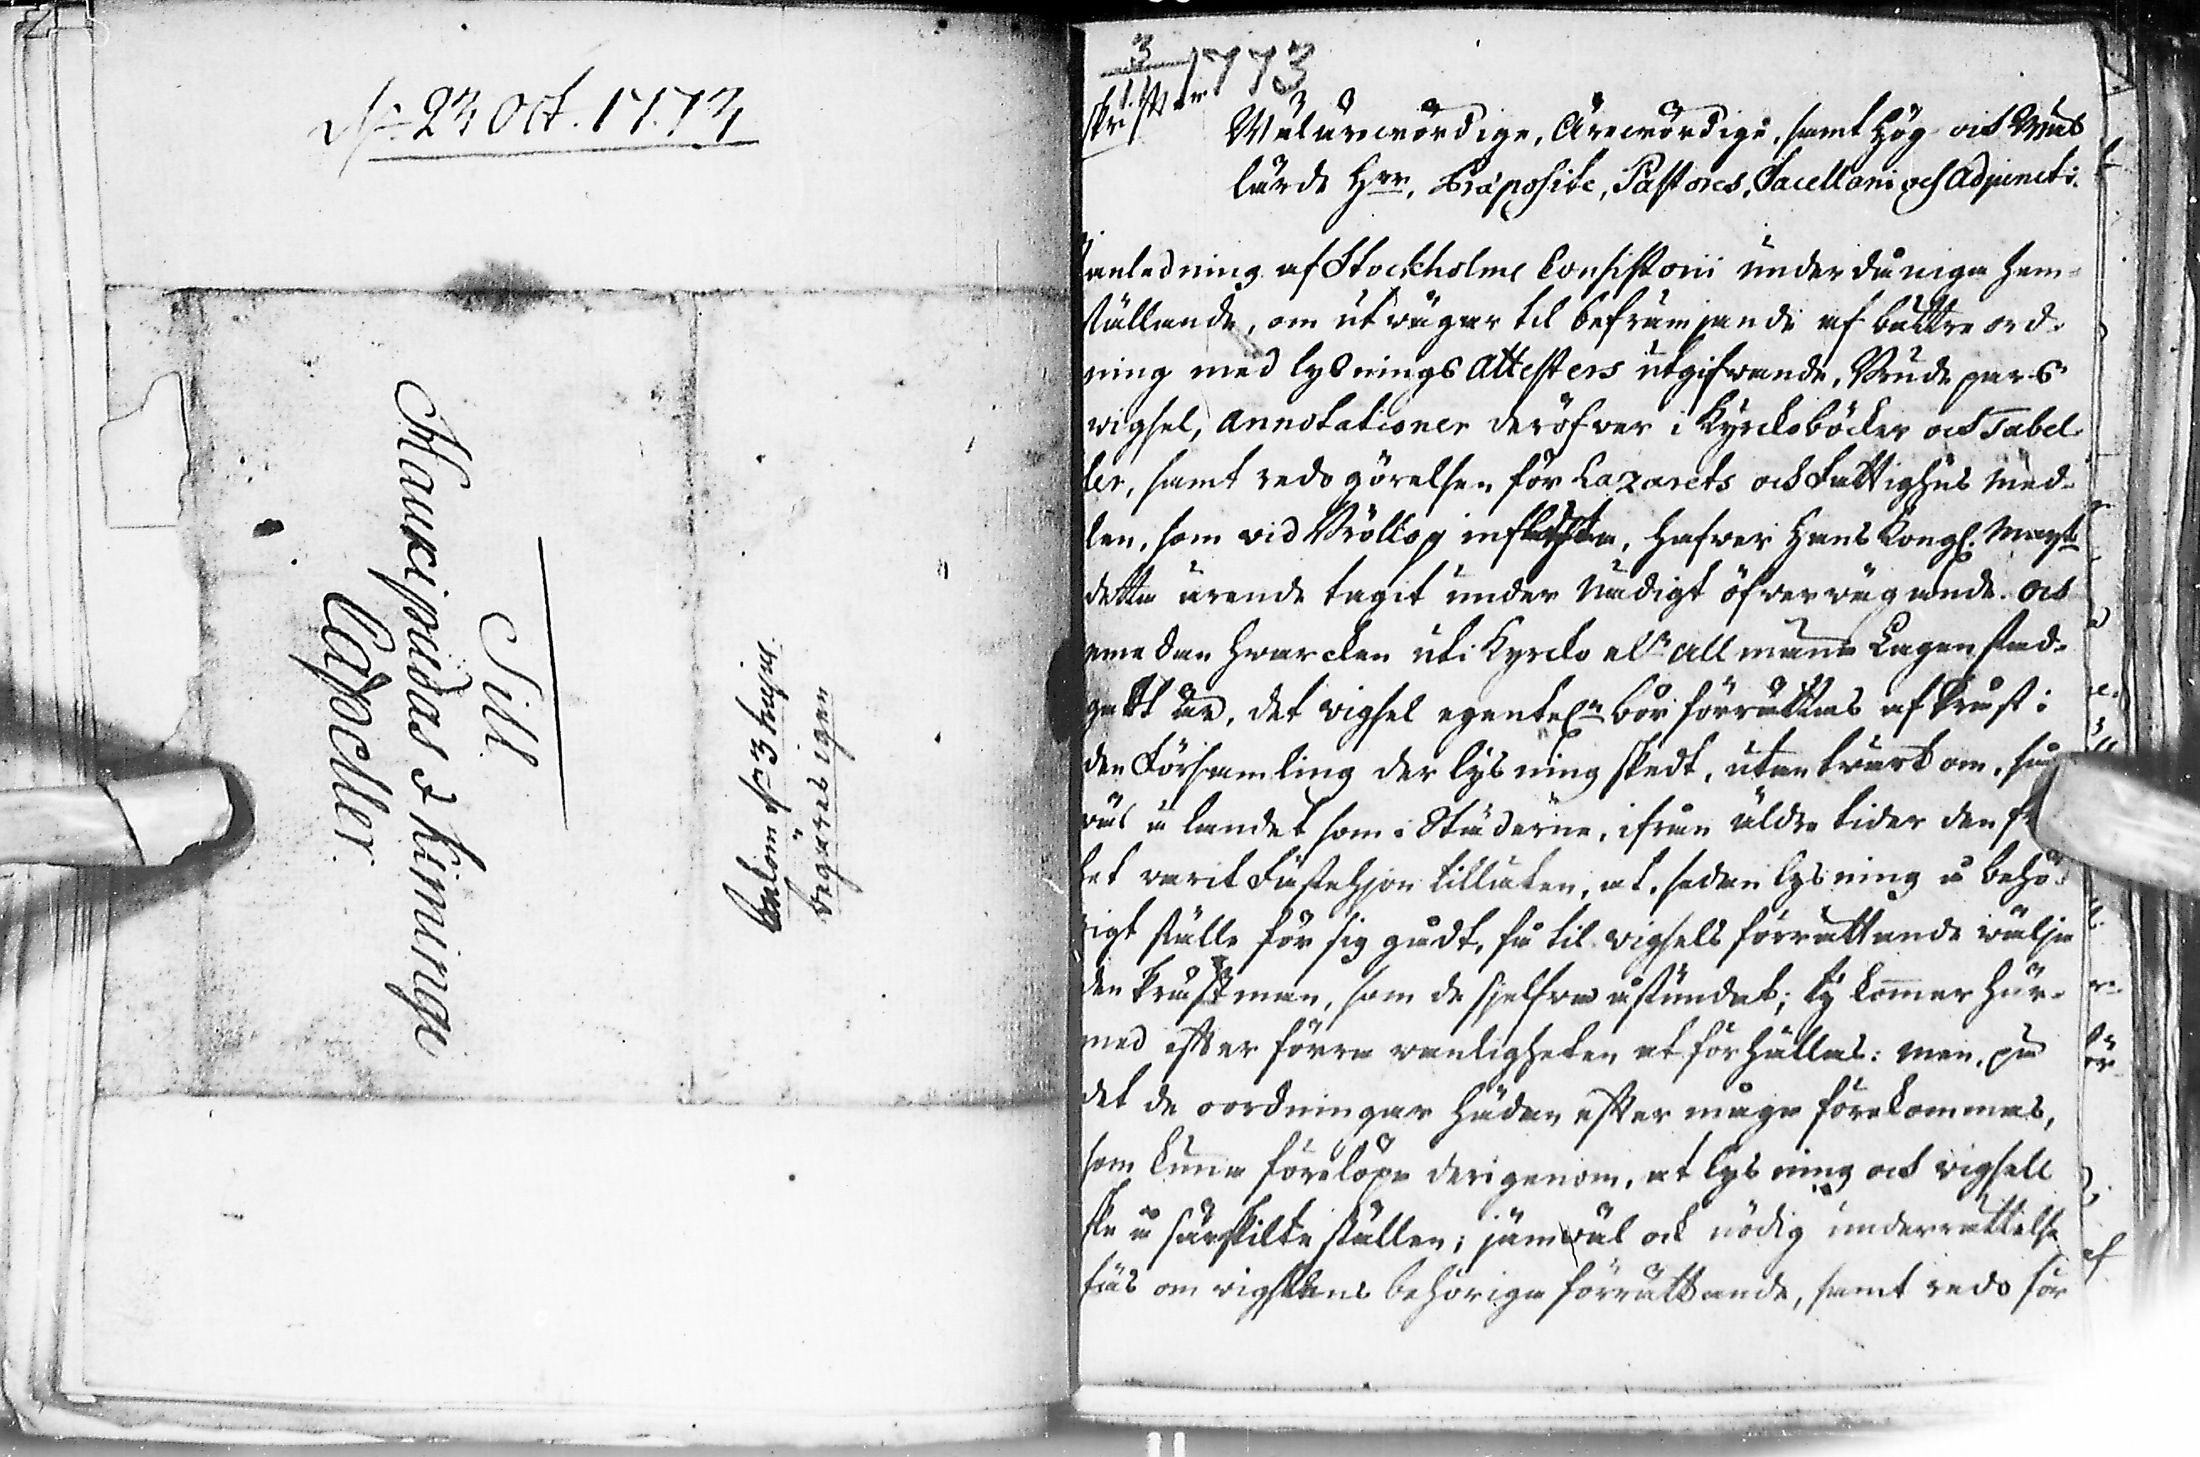 d. 23 Oct. 1773
Till
Haukipudas & Kiminge
Capeller.
begäres igen
3 1773
Wälärewördige, Ärewördige, samt Hög och Wäl
lärde Hrr, Præposite, Pastores, Sacellani och Adjuncti.
anledning af Stockholms Consistorii underdåniga hem-
ställande, om utwägar til befrämjande af bättre ord-
ning med lysnings Attesters utgifwande, Brudepars
wigsel, Annotationer deröfwer i Kyrckoböcker och Tabel-
ler, samt redogörelsen för Lazarets och Fattighus med-
len, som wid Bröllop inflyta, hafwer Hans Kongl. Mayt
detta ärende tagit under Nådigt öfwerwägande. Och
emedan hwarcken uti Kyrcko elr allmänna Lagen stad-
gatt är, det wigsel egentel:n bör förrättas af Präst i
den Församling der lysning skedt, utan twärt om, så
wäl å landet som i Städerne, ifrån äldre tider den fri
het varit Fästehjon tillåten, at, sedan lysning å behö-
rigt ställe för sig gådt, få til wigsels förrättande wälja
den Prästman, som de sjelfwa åstundat; Ty kommer här-
med efter förra wanligheten at förhållas: men, på
det de oordningar hädanefter måga förekommas,
som kunna förelöpa derigenom, at lysning och wigsell
ske å särskilte ställen; jämwäl och nödig underrättelse
fås om wigslens behöriga förrättande, samt redo för